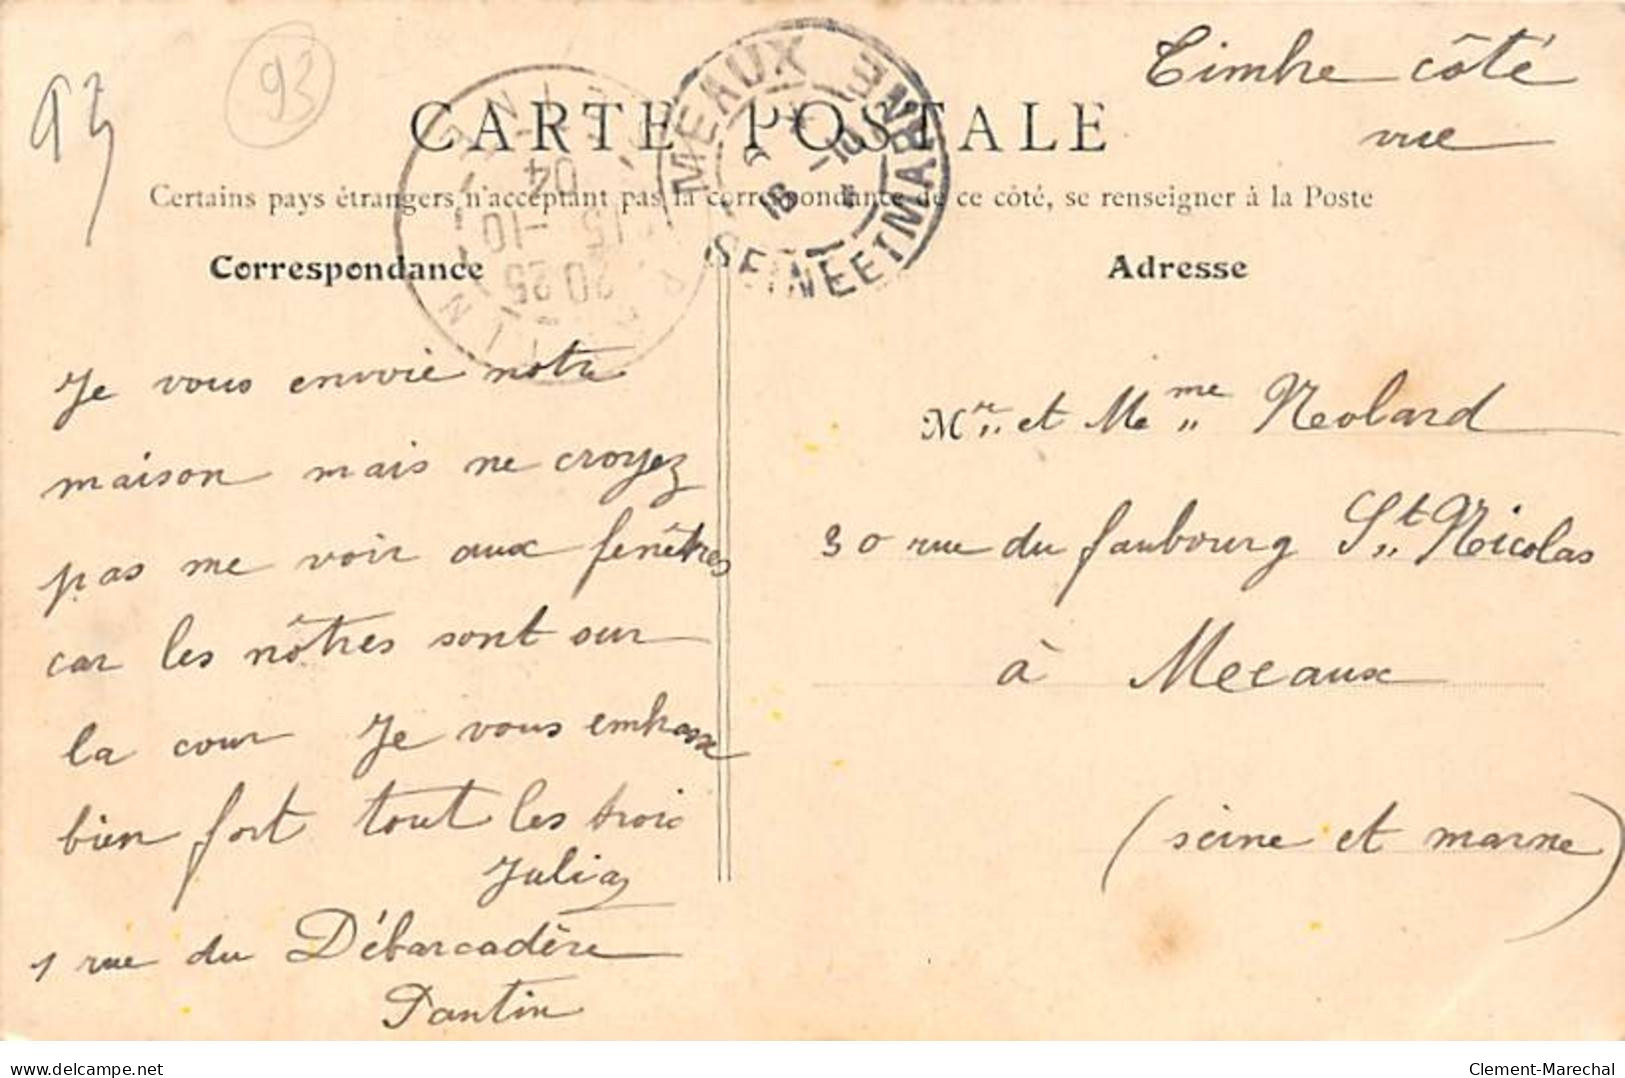 93
93
Timbre côté
vue
CARTE POSTALE
MEAUX
SEINE ET MARNE
16 -10
PANTIN
20 25
15 -10
04
Certains pays étrangers n'acceptant pas la correspondance de ce côté, se renseigner à la Poste
Correspondance
Je vous envoie notre
maison mais ne croyez
pas me voir aux fenêtres
car les nôtres sont sur
la cour Je vous embrasse
bien fort tout les trois
Julia
1 rue du Débarcadère
Pantin
Adresse
Mr et Mme Neolard
30 rue du faubourg St Nicolas
à Meeaux
(seine et marne)
delcampe.net
Clement-Marechal